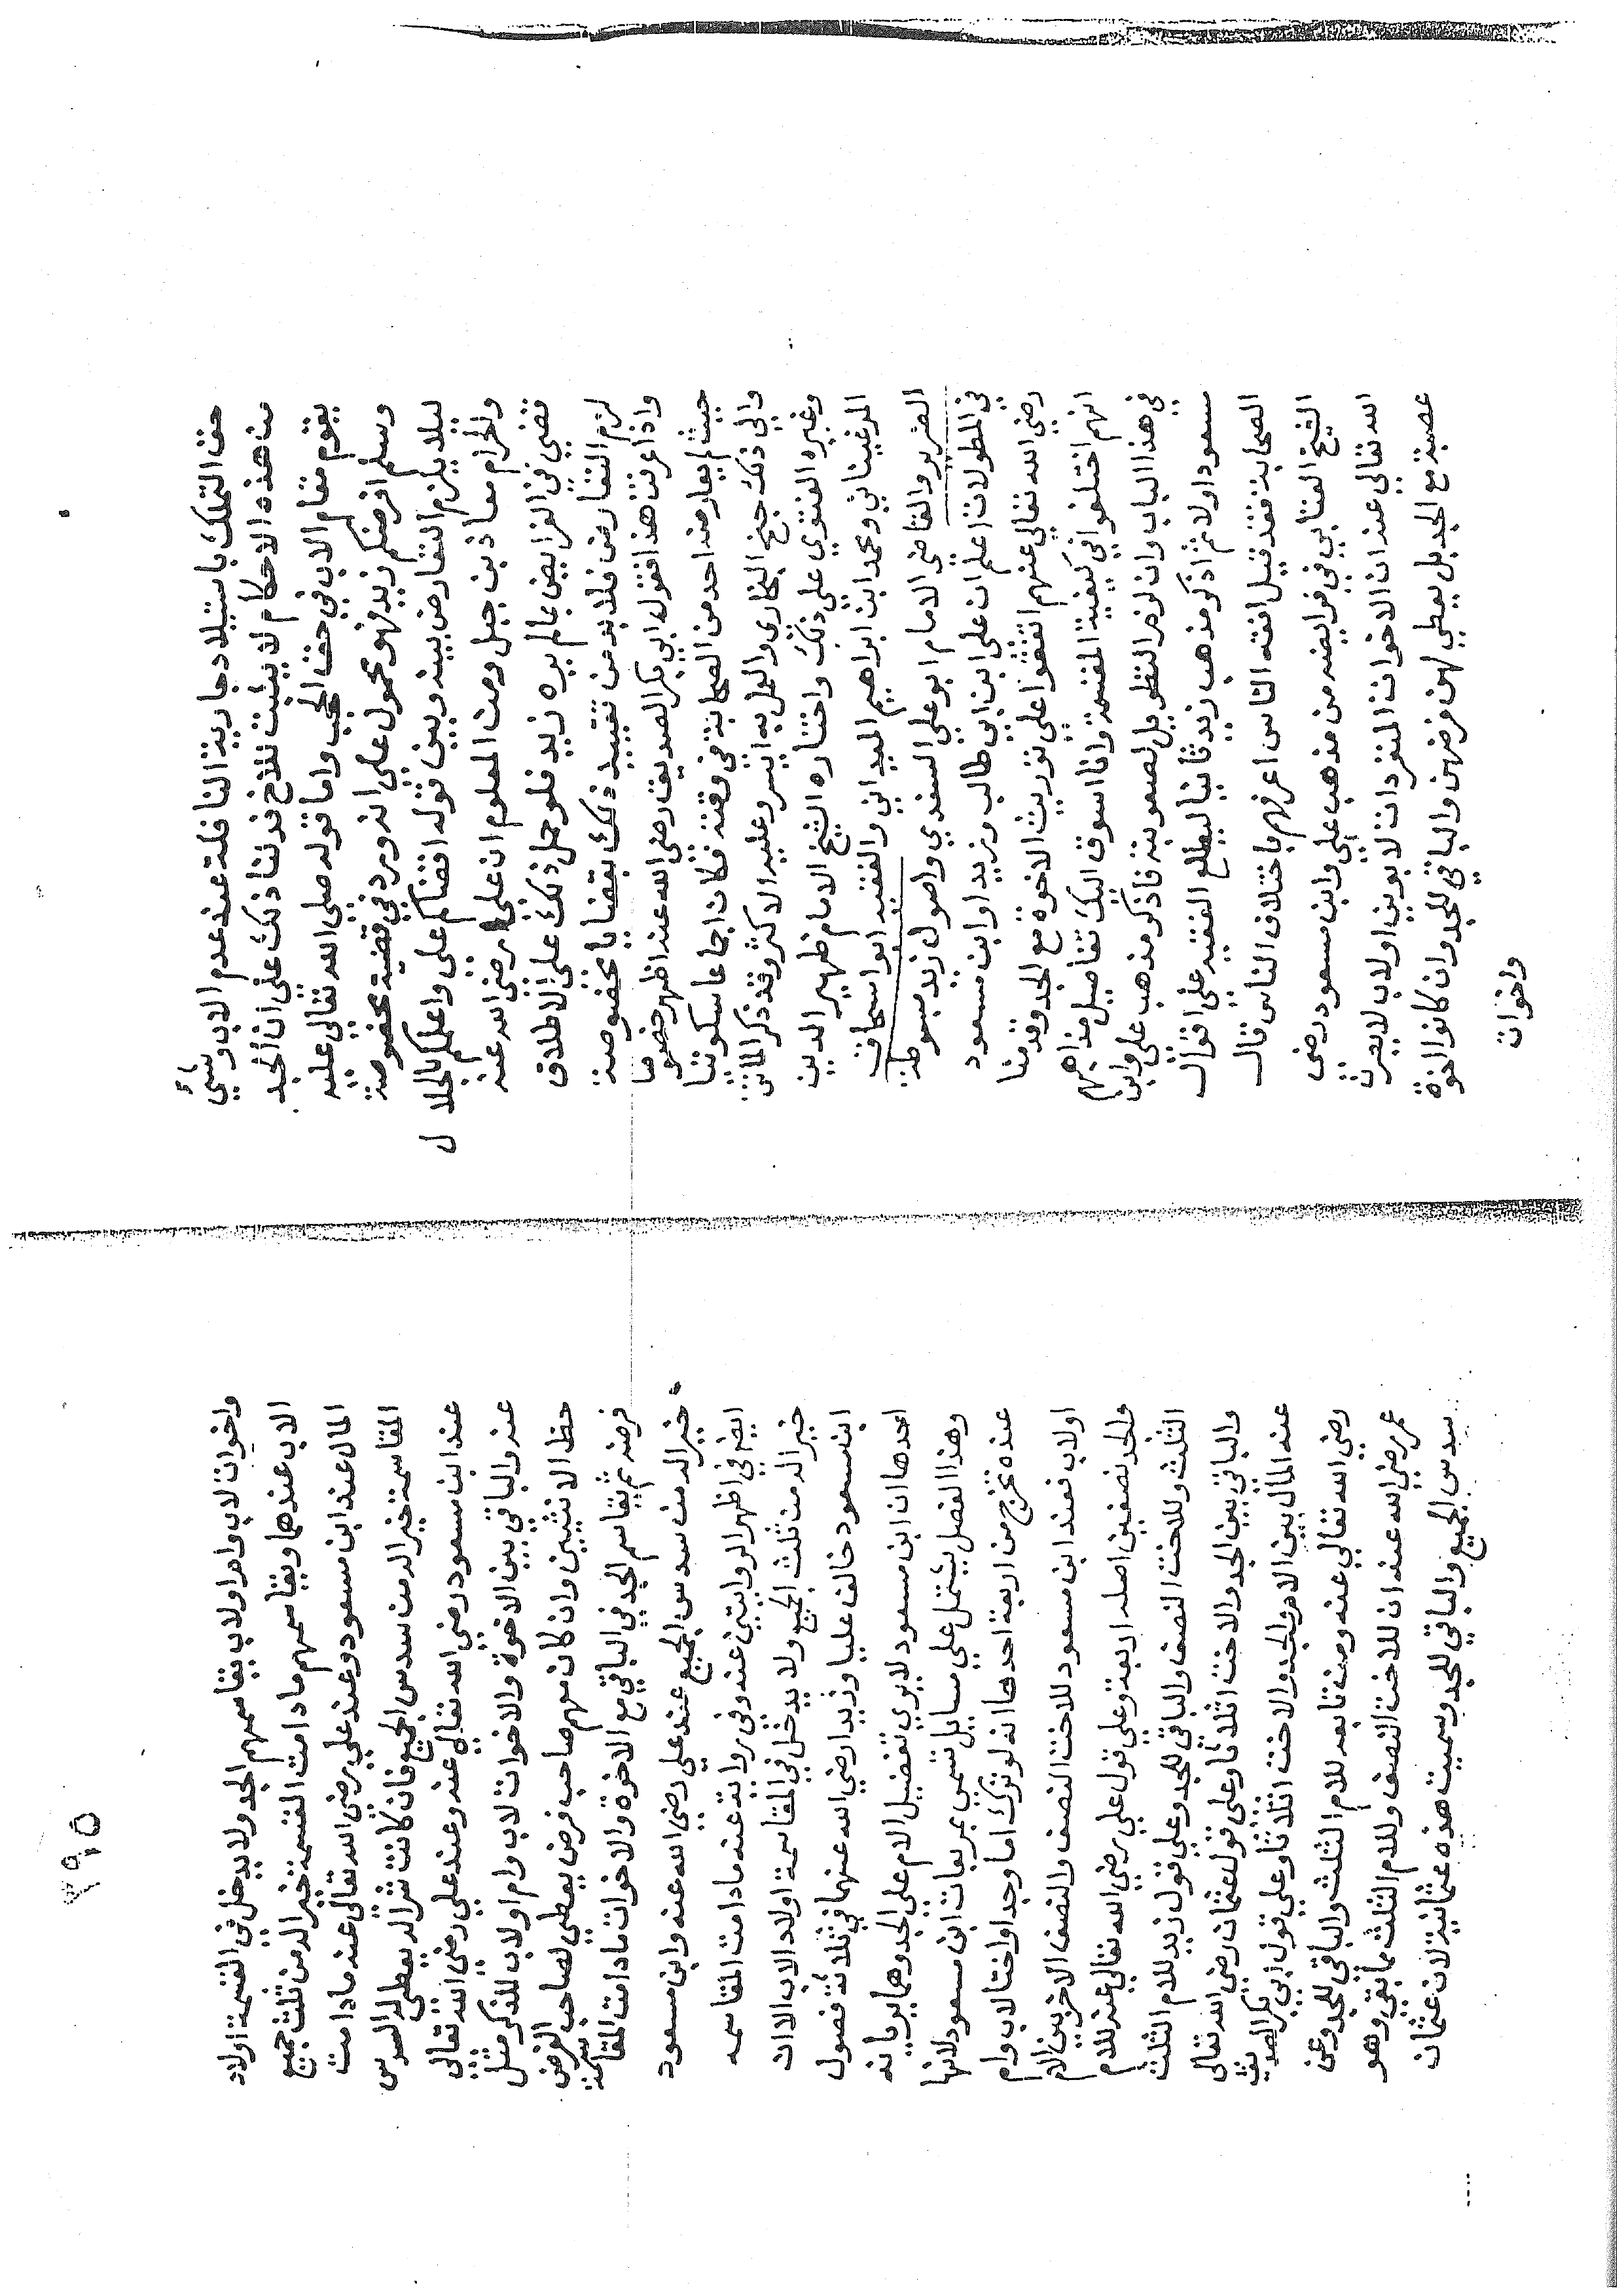 حق التملك باستيلاد جارية النافلة عند عدم الاب وشيء
من هذه الاحكام لا يثبت للاخ فدلنا ذلك علي ان الجد
يقوم مقام الاب في حق الحجب واما قوله صلي الله تعالي عليه
وسلم افرضكم زيد فهو محمول علي انه ورد في قضية مخصوصة
ليلا يلزم التعارض بينه وبين قوله اقضاكم علي واعلمكم بالحلال
والحرام معاذ بن جبل ومن المعلوم ان علي رضي الله عنه
قضي في الفرايض بمالم يره زيد فلو حمل ذلك علي الاطلاق
لزم التعارض فلا بد من تقييد ذلك بقضايا مخصوصة
واذا عرفت هذا فقول ابي بكر الصديق رضي الله عنه اظهر خصوصا
حيث لم يعارضه احد من الصحابة في وقته فكان اجماعا سكوتيا
والي ذلك جنح البخاري والعمل به ايسر وعليه الاكثر وقد ذكر الماتن
وغيره الفتوي علي ذلك واختاره الشيخ الامام ظهير الدين
المرغيناني ومحمد ابن ابراهيم الميداني والفقيه ابو اسحاق
الضرير والقاضي الامام ابو علي السغدي واصول زيد مبسوطة
في المطولات اعلم ان علي ابن ابي طالب وزيد او ابن مسعود
رضي الله تعالي عنهم اتفقوا علي توريث الاخوة مع الجد وقدمنا
انهم اختلفوا في كيفية القسمة وانا اسوق اليك تفاصيل مذاهبهم
في هذا الباب وان لزم التطويل لصعوبته فاذكر مذهب علي وابن
مسعود اولا ثم اذكر مذهب زيد ثانيا ليطلع الفقيه علي اقوال
الصحابة فقد قيل افقه الناس اعرفهم باختلاف الناس قال
الشيخ العتابي في فرايضه من مذهب علي وابن مسعود رضي
الله تعالي عنه ان الاخوات المنفردات لابوين او لاب لا يصرن
عصبة مع الجد بل يعطي لهن فرضهن والباقي للجد وان كانوا اخوة
واخوات
٢٩٥
واخوات لاب وام او لاب يقاسمهم الجد ولا يدخل في القسمة اولاد
الاب عندهما ويقاسمهم ما دامت القسمة خير اله من ثلث جميع
المال عند ابن مسعود وعند علي رضي الله تعالي عنه ما دامت
المقاسمة خير اله من سدس الجميع فان كانت شرا له يعطي له السدس
عند ابن مسعود رضي الله تعالي عنه وعند علي رضي الله تعالي
عنه والباقي بين الاخوة والاخوات لاب وام او لاب للذكر مثل
حظ الانثيين وان كان معهم صاحب فرض يعطي لصاحب الفرض
فرضه ثم يقاسم الجد في الباقي مع الاخوة والاخوات ما دامت المقاسمة
خير اله من سدس الجميع عند علي رضي الله عنه وابن مسعود
ايضا في اظهر الروايتين عنه وفي رواية عنه ما دامت المقاسمه
خير اله من ثلث الجميع ولا يدخل في المقاسمة اولاد الاب الا ان
ابن مسعود خالف عليا وزيدا رضي الله عنهما في ثلاثة فصول
احدها ان ابن مسعود لا يري تفضيل الام علي الجد وهما يريانه
وهذا الفصل يشتمل علي مسايل تسمي بمربعات ابن مسعود لانها
عنده تخرج من اربعة احدها انه لو ترك اما وجدا واختا لاب وام
او لاب فعند ابن مسعود للاخت النصف والنصف الاخر بين الام
والجد نصفين اصله اربعة وعلي قول علي رضي الله تعالي عنه للام
الثلث وللاخت النصف والباقي للجد وعلي قول زيد للام الثلث
والباقي بين الجد والاخت اثلاثا وعلي قول عثمان رضي الله تعالي
عنه المال بين الام والجد والاخت اثلاثا وعلي قول ابي بكر الصديق
رضي الله تعالي عنه ومن تابعه للام الثلث والباقي للجد وعن
عمر رضي الله عنه ان للاخت النصف وللام الثلث ما بقي وهو
سدس الجميع والباقي للجد وسميت هذه عثمانية لان عثمان